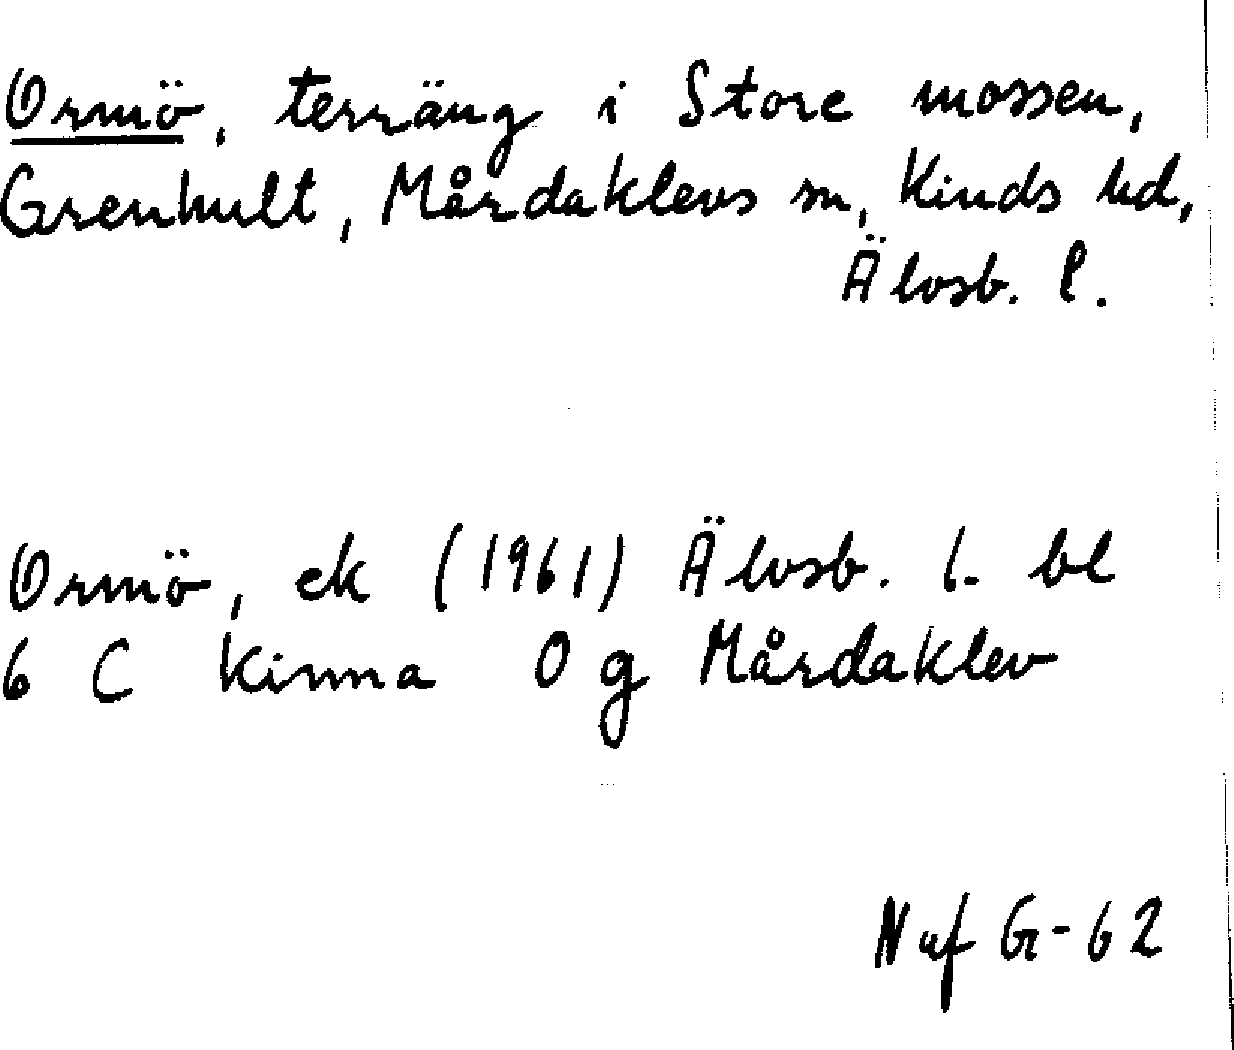 Ormö, terräng i Store mossen,
Grenhult, Mårdaklevs sn, Kinds hd,
Älvsb. l.
Ormö, ek (1961) Älvsb. l. bl
6 C Kinna 0 g Mårdaklev
Naf G-62